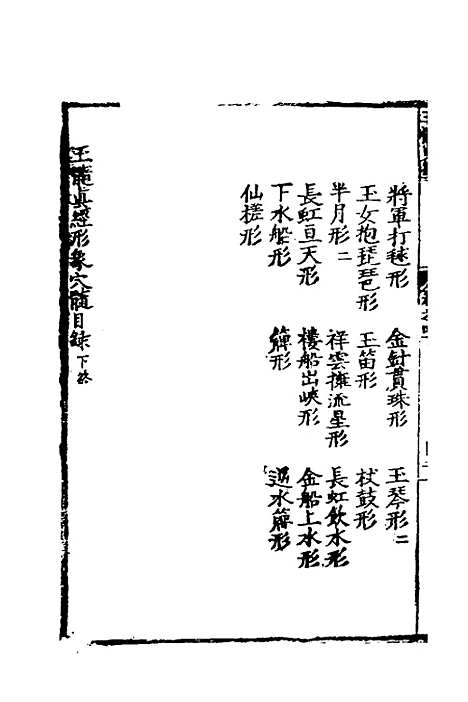 將軍打毬形　金針貫珠形　玉琴形二
玉女抱琵琶形　玉笛形　杖鼓形
半月形二　祥雲擁流星形　長虹飲水形
長虹亘天形　樓船出峽形　金船上水形
下水船形　簰形　逆水簰形
仙槎形
玉髓真經形象穴髓目録下終